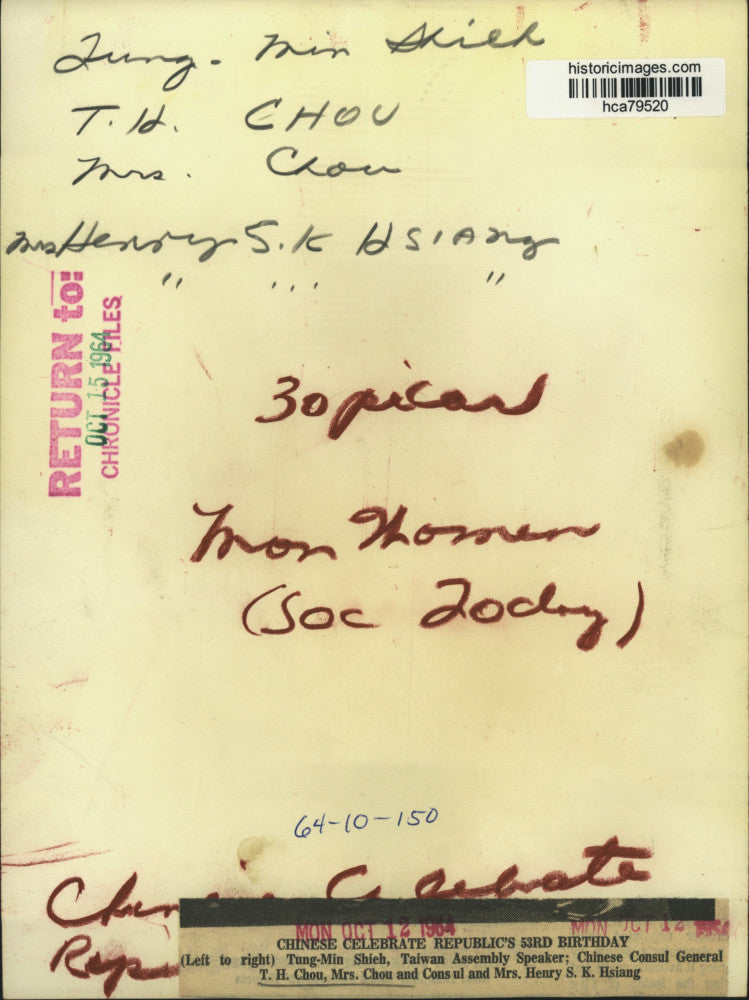 Tung-Min Shieh
historicimages.com
hca79520
T. H. CHOU
Mrs. Chou
Mrs Henry S.K HSIANG
" " "
RETURN to:
OCT 15 1964
CHRONICLE FILES
30picas
Mon Women
(Soc Today)
64-10-150
Celebrate
MON OCT 12 1964
MON OCT 12 1964
CHINESE CELEBRATE REPUBLIC'S 53RD BIRTHDAY
(Left to right) Tung-Min Shieh, Taiwan Assembly Speaker; Chinese Consul General
T. H. Chou, Mrs. Chou and Consul and Mrs. Henry S. K. Hsiang